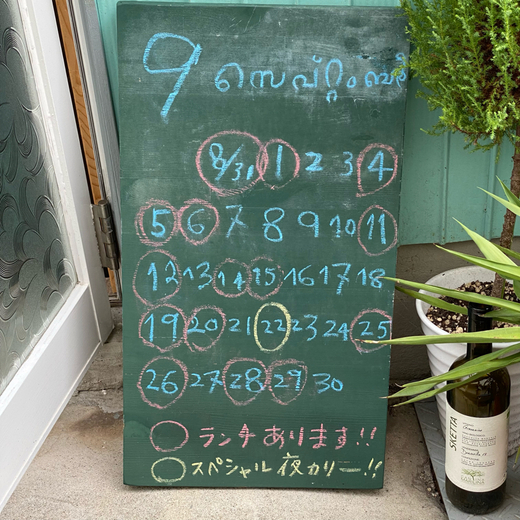 9 സെപ്റ്റംബർ
8/31 1 2 3 4
5 6 7 8 9 10 11
12 13 14 15 16 17 18
19 20 21 22 23 24 25
26 27 28 29 30
ランチあります!!
スペシャル夜カリー!!
SKETTA